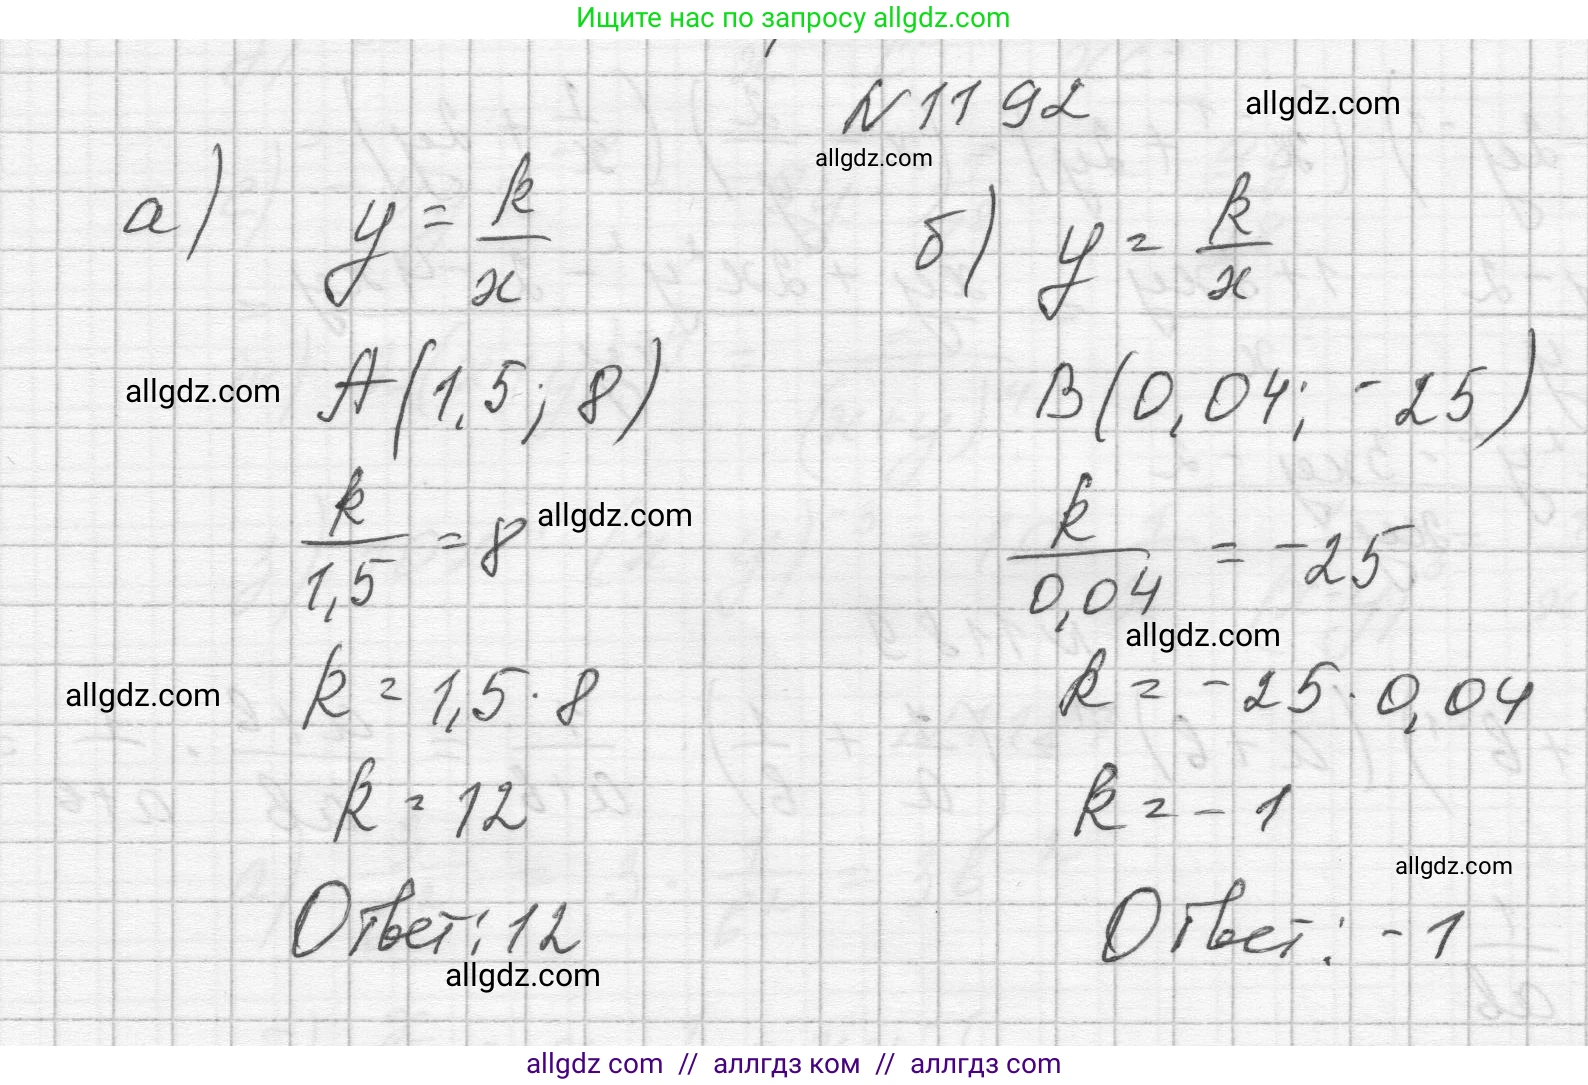 Ищите нас по запросу allgdz.com
N 1192
allgdz.com
allgdz.com
а) y = k/x
A(1,5; 8)
allgdz.com
k/1,5 = 8
allgdz.com
k = 1,5 · 8
allgdz.com
k = 12
Ответ: 12
allgdz.com
б) y = k/x
B(0,04; -25)
k/0,04 = -25
allgdz.com
k = -25 · 0,04
k = -1
allgdz.com
Ответ: -1
allgdz.com // аллгдз ком // аллгдз com